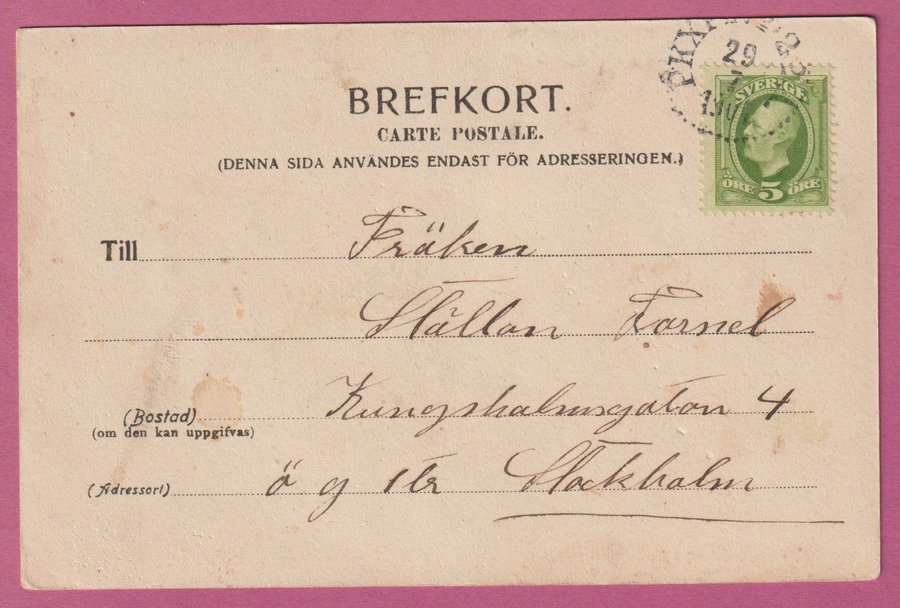 PKXP
29
7
SVERIGE
BREFKORT.
CARTE POSTALE.
(DENNA SIDA ANVÄNDES ENDAST FÖR ADRESSERINGEN.)
ÖRE 5 ÖRE
Till Fröken
Tornel
(Bostad) Kungsholmsgatan 4
(om den kan uppgifvas)
(Adressort) ö g 1 tr Stockholm